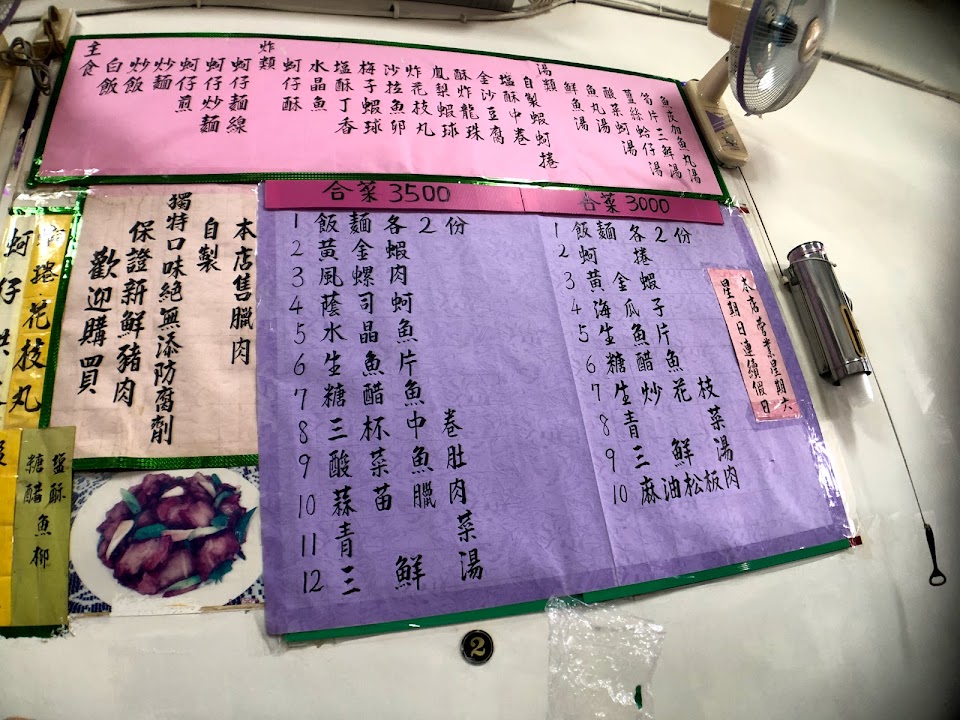 主食
白飯
炒飯
炒麵
蚵仔煎
蚵仔炒麵
蚵仔麵線
炸類
蚵仔酥
水晶魚
塩酥丁香
梅子蝦球
沙拉魚卵
炸花枝丸
鳯梨蝦球
酥炸龍珠
金沙豆腐
塩酥中卷
自製蝦蚵捲
湯類
鮮魚湯
魚丸湯
酸菜蚵湯
薑絲蛤仔湯
筍片三鮮湯
魚皮加魚丸湯
合菜3500
1 飯麵各2份
2 黃金蝦
3 風螺肉
4 蔭司蚵
5 水晶魚
6 生魚片
7 糖醋魚
8 三杯中卷
9 酸菜魚肚
10 蒜苗臘肉
11 青菜
12 三鮮湯
合菜3000
1 飯麵各2份
2 蚵捲
3 黃金蝦
4 海瓜子
5 生魚片
6 糖醋魚
7 生炒花枝
8 青菜
9 三鮮湯
10 麻油松板肉
本店營業星期六
星期日連續假日
本店售臘肉
自製
獨特口味絕無添防腐劑
保證新鮮豬肉
歡迎購買
捲花技丸
蚵仔
塩酥
糖醋魚柳
2